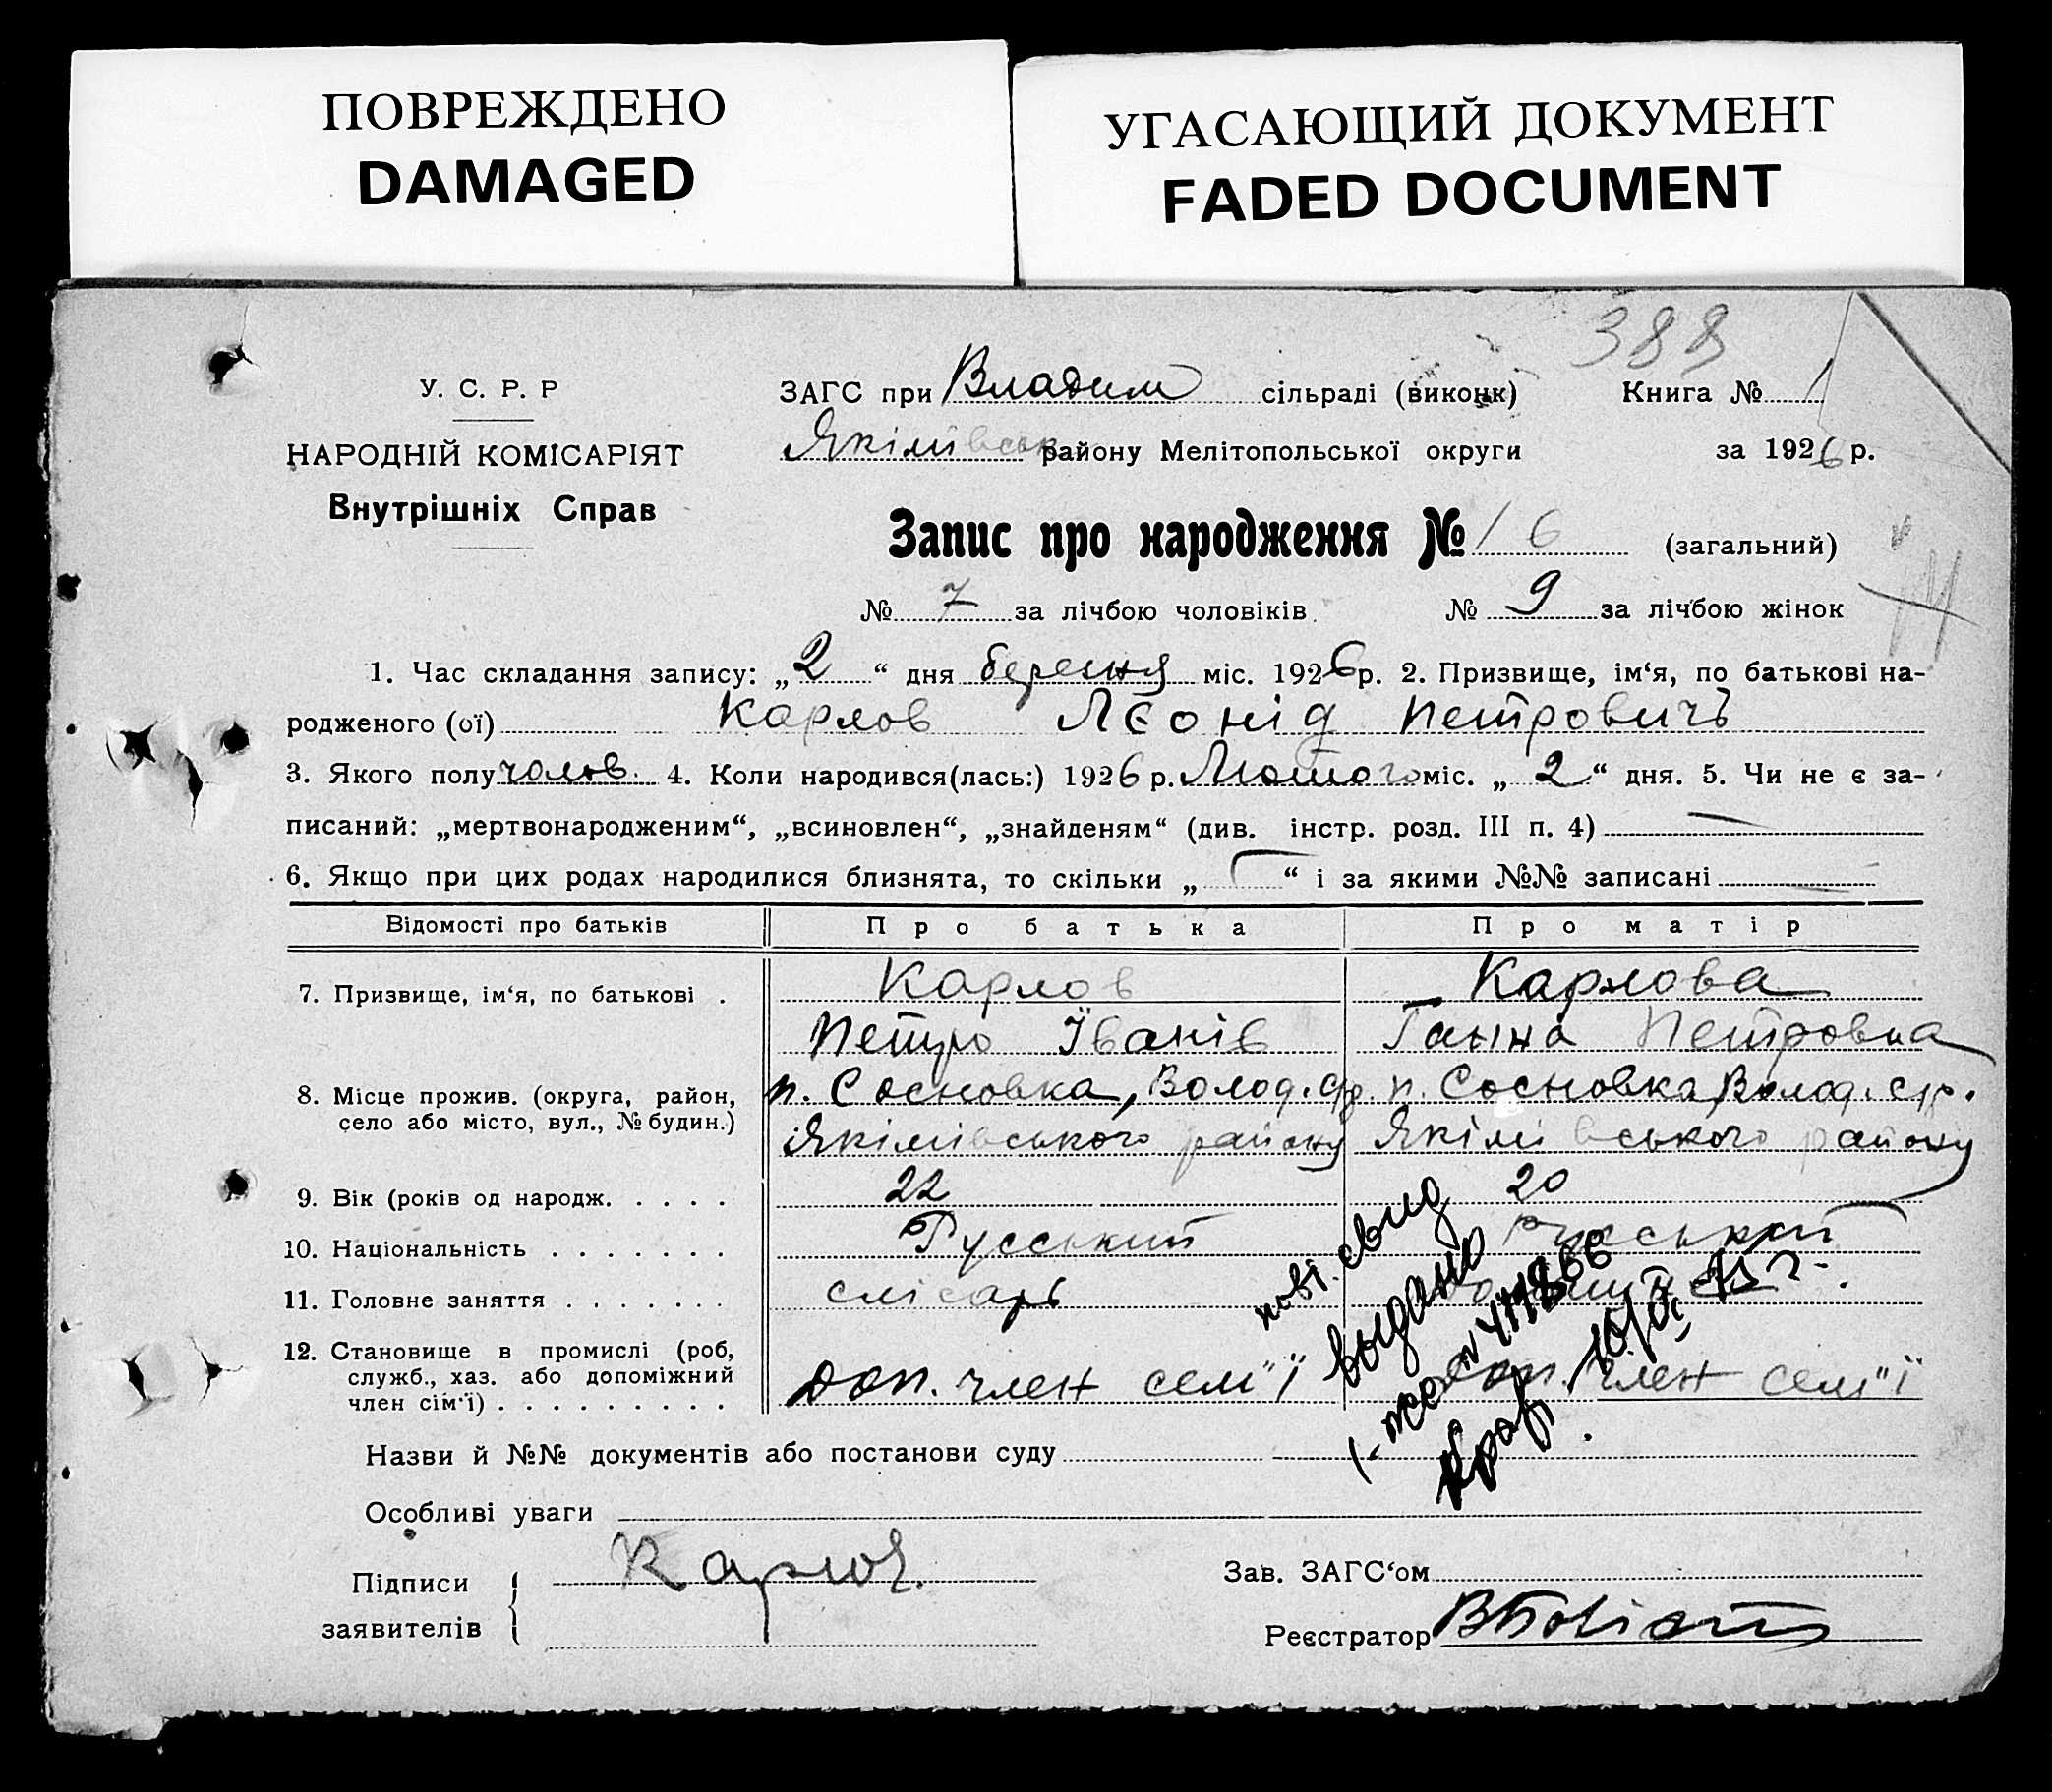 ПОВРЕЖДЕНО
DAMAGED
УГАСАЮЩИЙ ДОКУМЕНТ
FADED DOCUMENT
388
У. С. Р. Р
НАРОДНІЙ КОМІСАРІЯТ
Внутрішніх Справ
ЗАГС при Владим сільраді (виконк) Книга № 1
Якімівськ району Мелітопольської округи за 1926 р.
Запис про народження № 16 (загальний)
№ 7 за лічбою чоловіків. № 9 за лічбою жінок
1. Час складання запису: „2“ дня березня міс. 1926 р. 2. Призвище, ім‘я, по батькові на-
родженого (ої) Карлов Леонід Петровичъ
3. Якого полу чолов. 4. Коли народився(лась:) 1926 р. Лютого міс. „2“ дня. 5. Чи не є за-
писаний: „мертвонародженим“, „всиновлен“, „знайденям“ (див. інстр. розд. III п. 4) —
6. Якщо при цих родах народилися близнята, то скільки „ “ і за якими №№ записані
Відомості про батьків Про батька Про матір
7. Призвище, ім‘я, по батькові . Карлов Карлова
Петро Їванів Ганна Петровна
8. Місце прожив. (округа, район, село або місто, вул., № будин.) п. Сосновка, Волод. с/р. п. Сосновка, Волод. с/р.
Якімівського району Якімівського району
9. Вік (років од народж. . . . . 22 20
10. Національність . . . . . . . Русський Русський
11. Головне заняття . . . . . . . слісарь
12. Становище в промислі (роб,
служб., хаз. або допоміжний
член сім‘ї) . . . . . . . . . Доп. член сем"ї доп. член сем"ї
нові. свид
выдано
N 411866
Назви й №№ документів або постанови суду
Особливі уваги
Підписи
заявителів
Карлов.
Зав. ЗАГС‘ом
Реєстратор